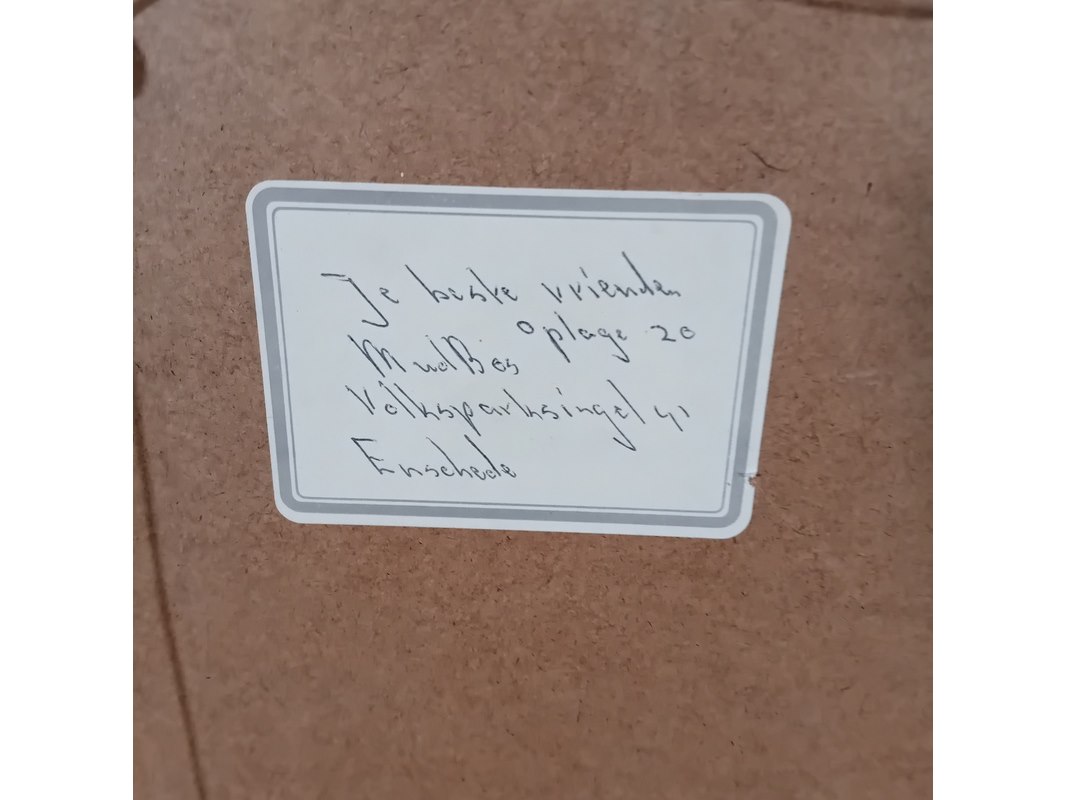 Je beste vrienden
Oplage 20
Mud Bos
Volksparksingel 41
Enschede